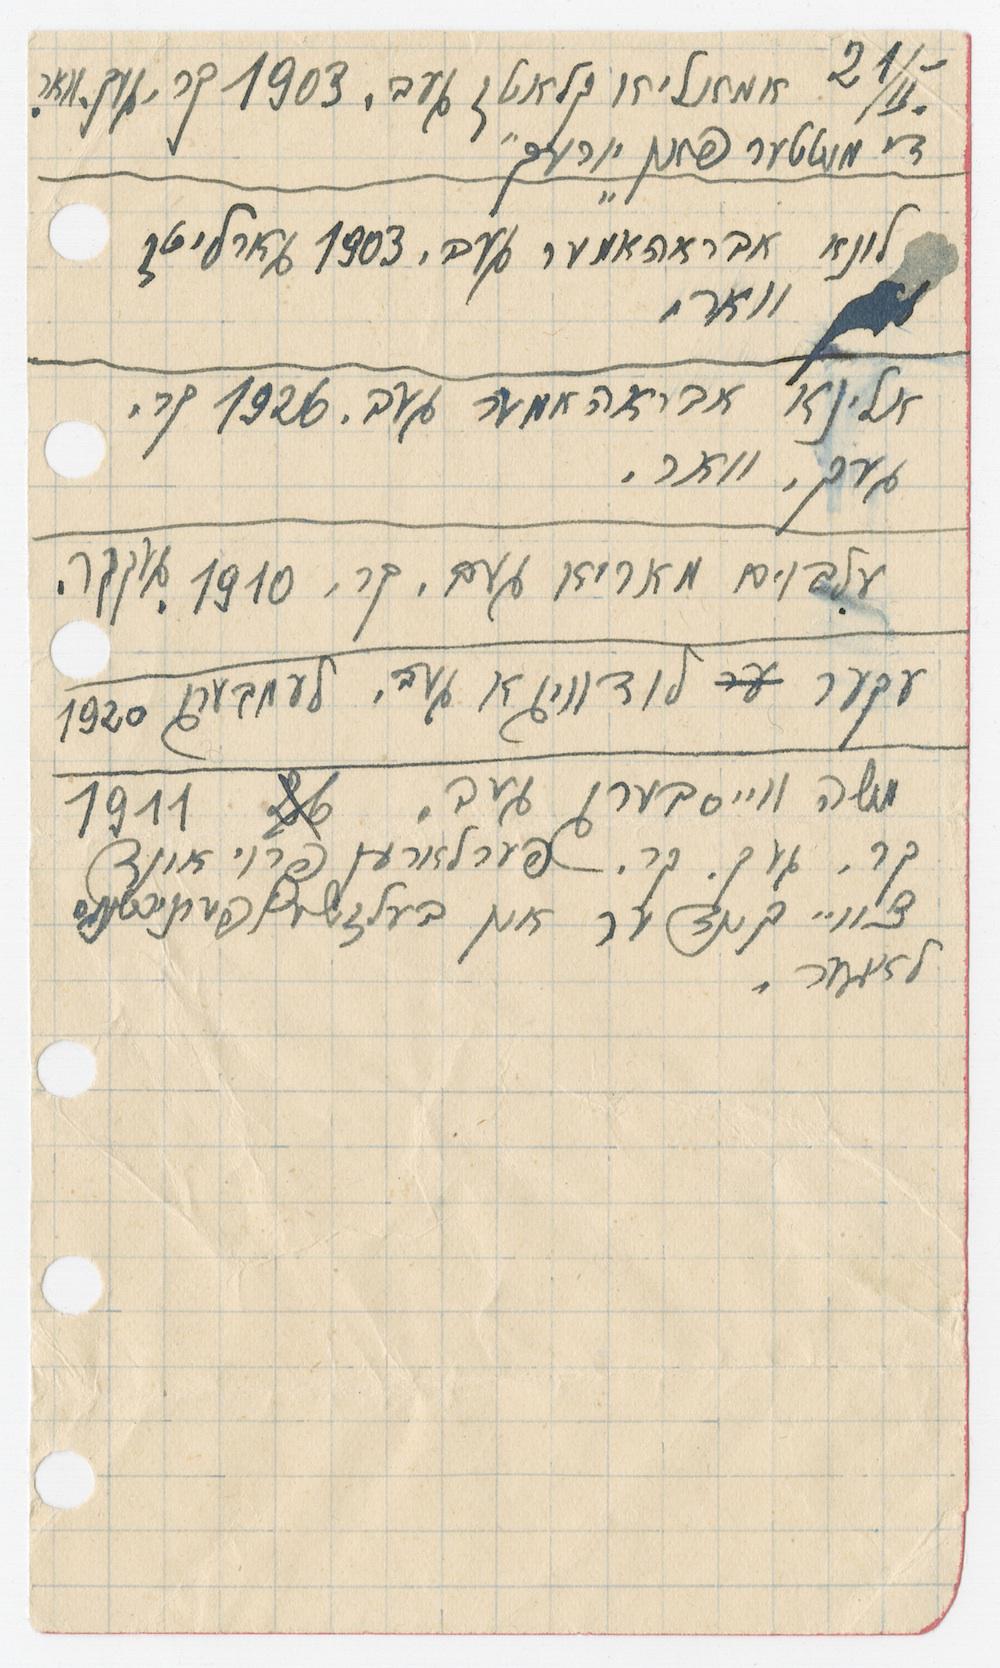 21/II. אמאליא קלאטן געב. 1903 קר. געק. וואר.
די מוטטער פון „יורעק"
לונא אבראהאמער געב. 1903 גארליטן
וואר.
אלינא אבראהאמער געב. 1926 קר.
געק. וואר.
מאריא געב. קר. 1910 געק קר.
עקער לודוויגא געב. לעמבערג 1920
משה ווייסבערג געב. 1911
קר. געק. קר. פערלארען פרוי אונד
צוויי קינדער אין
לאגער.